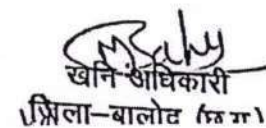 खनि अधिकारी
जिला-बालोद (छ ग)